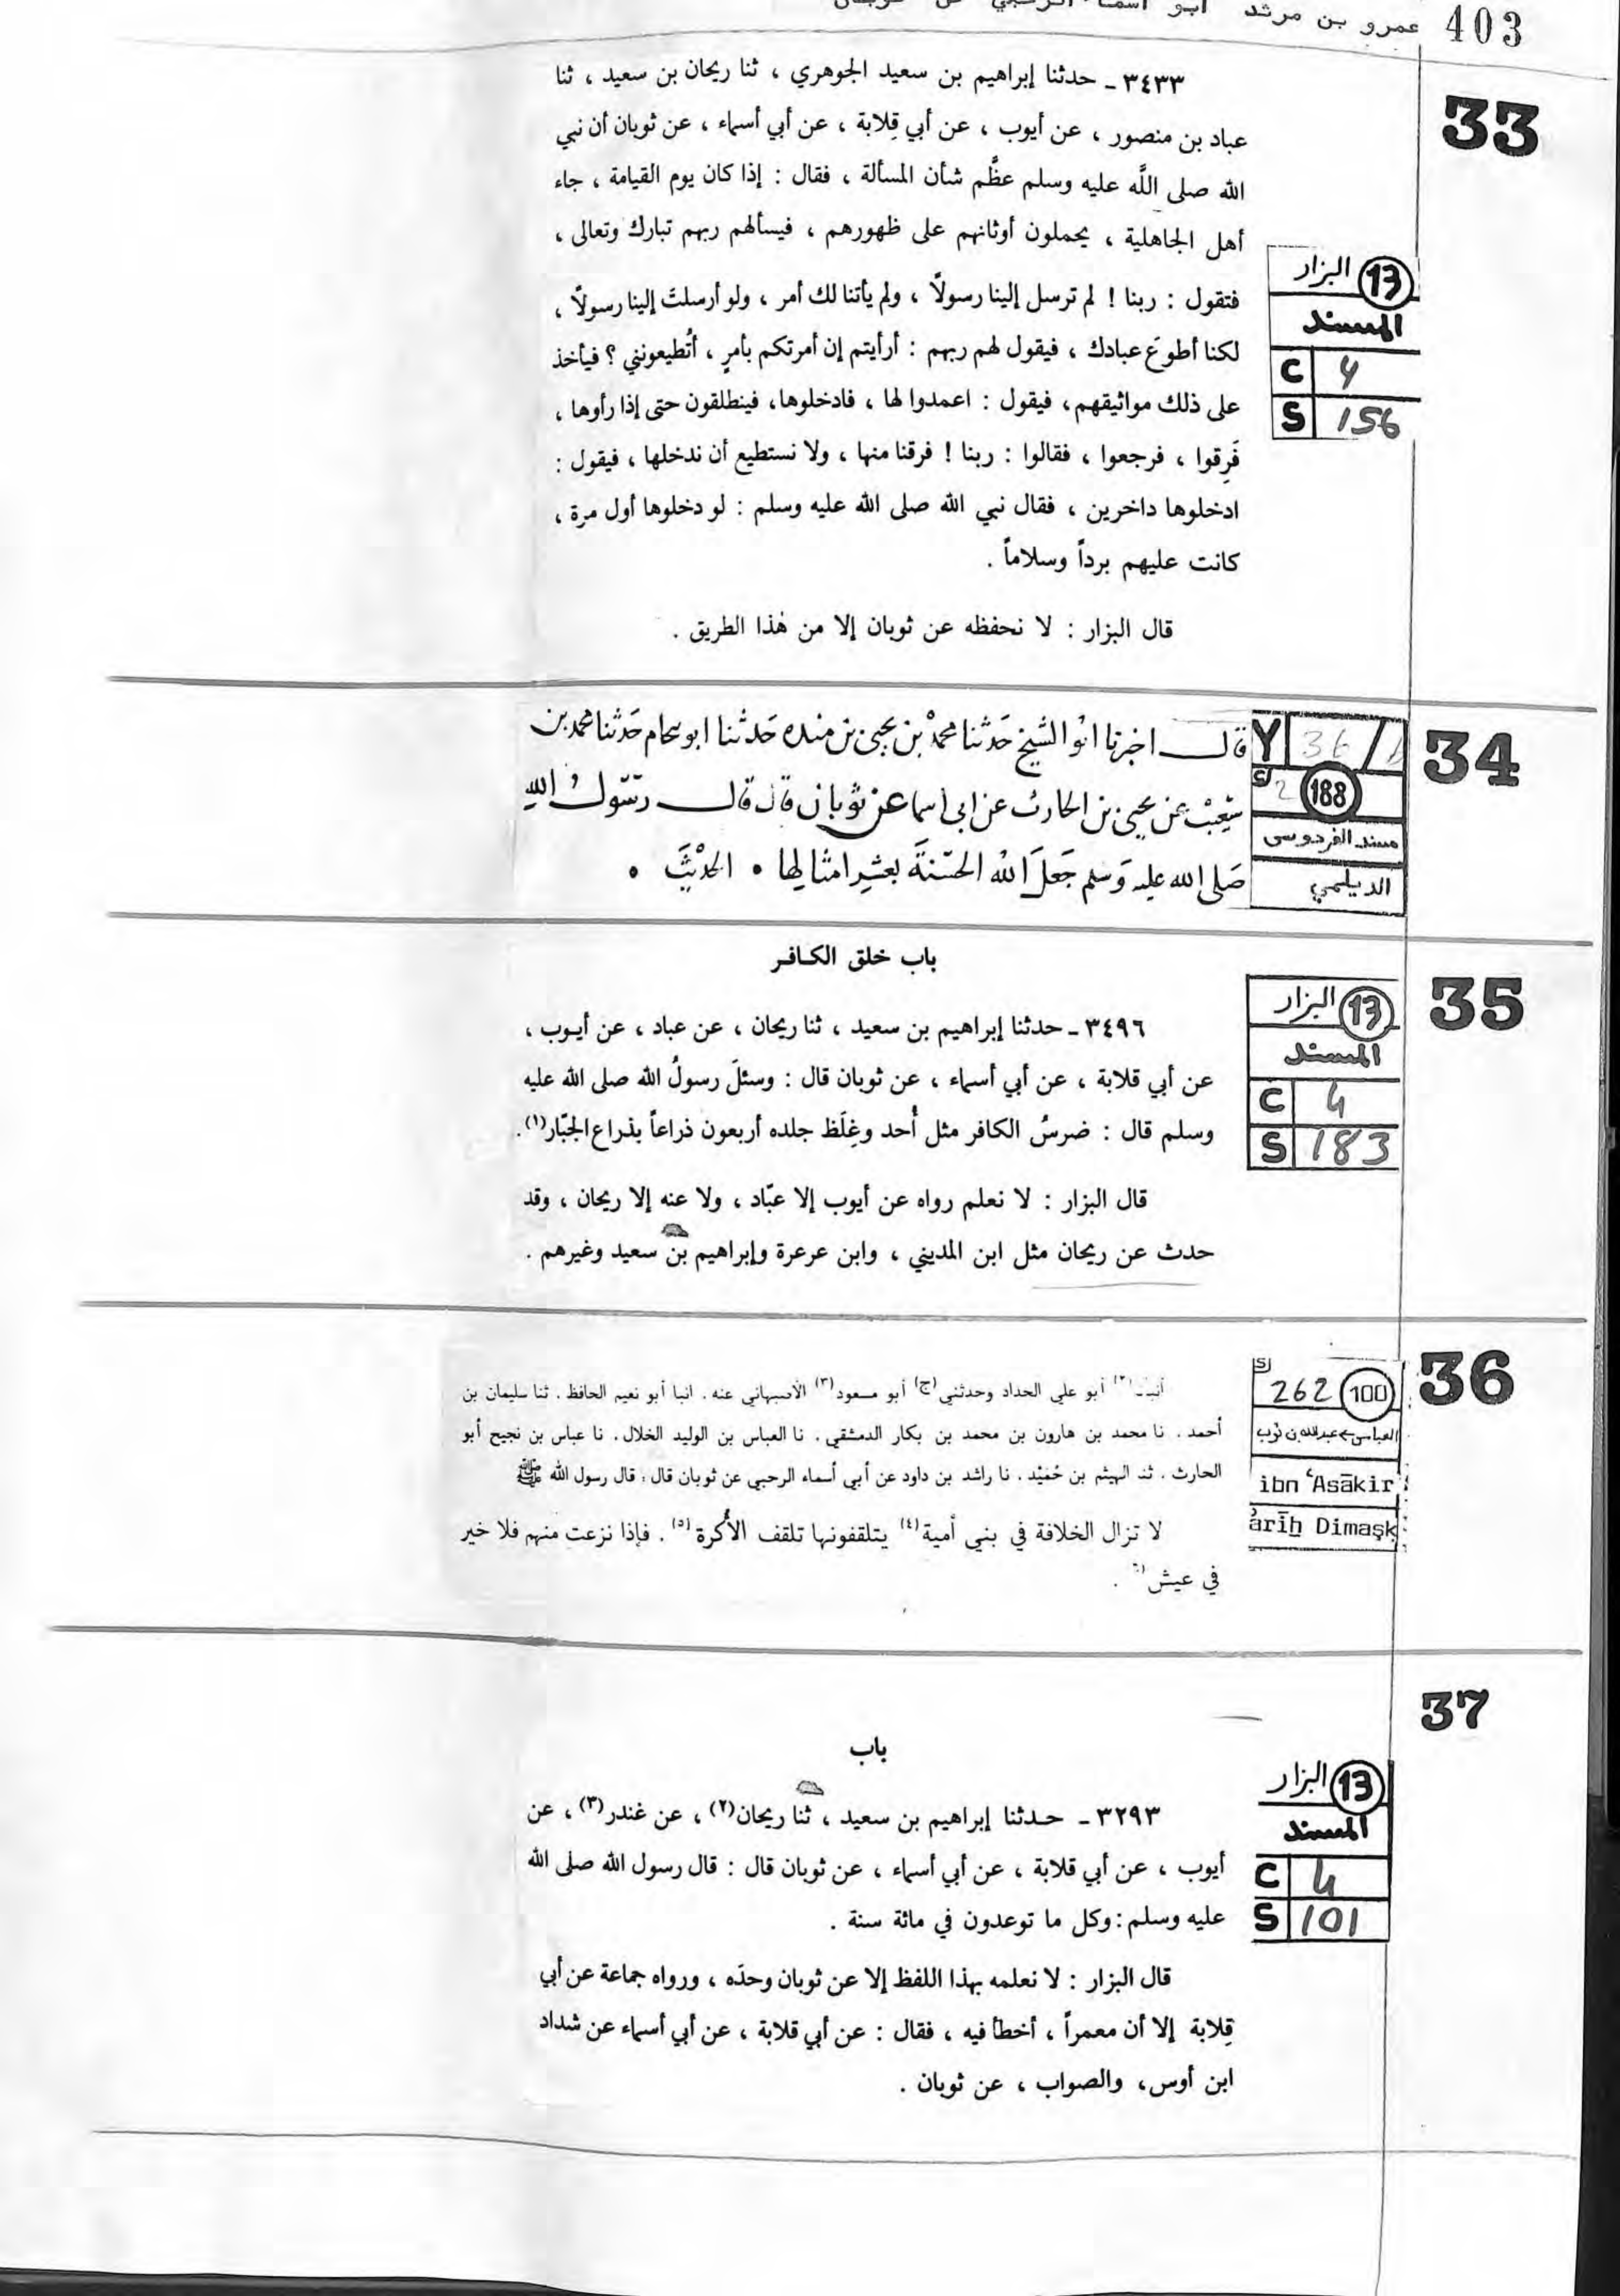 403 عمرو بن مرثد أبو أسماء الرحبي عن ثوبان
33
٣٤٣٣ - حدثنا إبراهيم بن سعيد الجوهري ، ثنا ريحان بن سعيد ، ثنا
عباد بن منصور ، عن أيوب ، عن أبي قِلابة ، عن أبي أسماء ، عن ثوبان أن نبي
الله صلى اللَّه عليه وسلم عظَّم شأن المسألة ، فقال : إذا كان يوم القيامة ، جاء
أهل الجاهلية ، يحملون أوثانهم على ظهورهم ، فيسألهم ربهم تبارك وتعالى ،
فتقول : ربنا ! لم ترسل إلينا رسولاً ، ولم يأتنا لك أمر ، ولو أرسلتَ إلينا رسولاً ،
لكنا أطوعَ عبادك ، فيقول لهم ربهم : أرأيتم إن أمرتكم بأمرٍ ، أتُطيعونني ؟ فيأخذ
على ذلك مواثيقهم، فيقول : اعمدوا لها ، فادخلوها، فينطلقون حتى إذا رأوها ،
فَرِقوا ، فرجعوا ، فقالوا : ربنا ! فرقنا منها ، ولا نستطيع أن ندخلها ، فيقول :
ادخلوها داخرين ، فقال نبي الله صلى الله عليه وسلم : لو دخلوها أول مرة ،
كانت عليهم برداً وسلاماً .
قال البزار : لا نحفظه عن ثوبان إلا من هٰذا الطريق .
13 البزار
المسند
C 4
S 156
34
قال اخبرنا ابو الشيخ حَدثنا محمدْ بن يحيى بن منده حَدثنا ابو حَدثنا محمد بن
شعيْب عن يحيى بن الحارث عن ابى اسما عن ثوبان قال قال رسّول الله
صَلى الله عليه وَسلم جَعلَ الله الحسَنةَ بعشرِ امثالِها • الحدْيثَ •
Y 36/
S 2 188
مسند الفردوسى
الديلمي
35
باب خلق الكـافـر
٣٤٩٦ - حدثنا إبراهيم بن سعيد ، ثنا ريحان ، عن عباد ، عن أيـوب ،
عن أبي قلابة ، عن أبي أسماء ، عن ثوبان قال : وسئلَ رسولُ الله صلى الله عليه
وسلم قال : ضرسُ الكافر مثل أُحد وغِلَظ جلده أربعون ذراعاً بذراع الجبّار(١).
قال البزار : لا نعلم رواه عن أيوب إلا عبّاد ، ولا عنه إلا ريحان ، وقد
حدث عن ريحان مثل ابن المديني ، وابن عرعرة وإبراهيم بن سعيد وغيرهم .
13 البزار
المسند
C 4
S 183
36
أنبأنا(٢) أبو علي الحداد وحدثني(ج) أبو مسعود(٣) الأصبهاني عنه . انبا أبو نعيم الحافظ . ثنا سليمان بن
أحمد . نا محمد بن هارون بن محمد بن بكار الدمشقي . نا العباس بن الوليد الخلال . نا عباس بن نجيح أبو
الحارث . ثنا الهيثم بن حُمَيْد . نا راشد بن داود عن أبي أسماء الرحبي عن ثوبان قال : قال رسول الله ﷺ
لا تزال الخلافة في بني أمية(٤) يتلقفونها تلقف الأُكرة(٥) . فإذا نزعت منهم فلا خير
في عيش(٦) .
S 262 100
العباس ← عبدالله بن ثوب
ibn ʿAsākir
ārīḫ Dimašḳ
37
باب
٣٢٩٣ - حـدثنا إبراهيم بن سعيد ، ثنا ريحان(٢) ، عن غندر(٣) ، عن
أيوب ، عن أبي قلابة ، عن أبي أسماء ، عن ثوبان قال : قال رسول الله صلى الله
عليه وسلم : وكل ما توعدون في مائة سنة .
قال البزار : لا نعلمه بهذا اللفظ إلا عن ثوبان وحدَه ، ورواه جماعة عن أبي
قِلابة إلا أن معمراً ، أخطأ فيه ، فقال : عن أبي قلابة ، عن أبي أسماء عن شداد
ابن أوس، والصواب ، عن ثوبان .
13 البزار
المسند
C 4
S 101